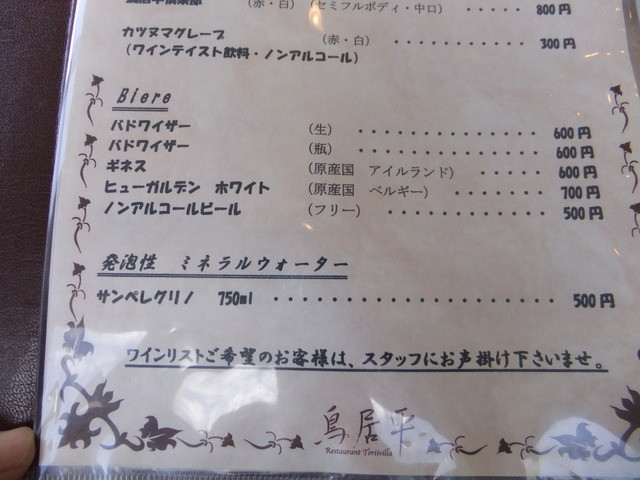 （赤・白）（セミフルボディ・中口）・・・・・・ 800円
カツヌマグレープ （赤・白）・・・・・・・・・・・ 300円
（ワインテイスト飲料・ノンアルコール）
Biere
バドワイザー （生）・・・・・・・・・・・・・ 600円
バドワイザー （瓶）・・・・・・・・・・・・・ 600円
ギネス （原産国 アイルランド）・・・・・ 600円
ヒューガルデン ホワイト （原産国 ベルギー）・・・・・・・ 700円
ノンアルコールビール （フリー）・・・・・・・・・・・ 500円
発泡性 ミネラルウォーター
サンペレグリノ 750ml ・・・・・・・・・・・・・・・・・・・・ 500円
ワインリストご希望のお客様は、スタッフにお声掛け下さいませ。
鳥居平
Restaurant Tortivilla